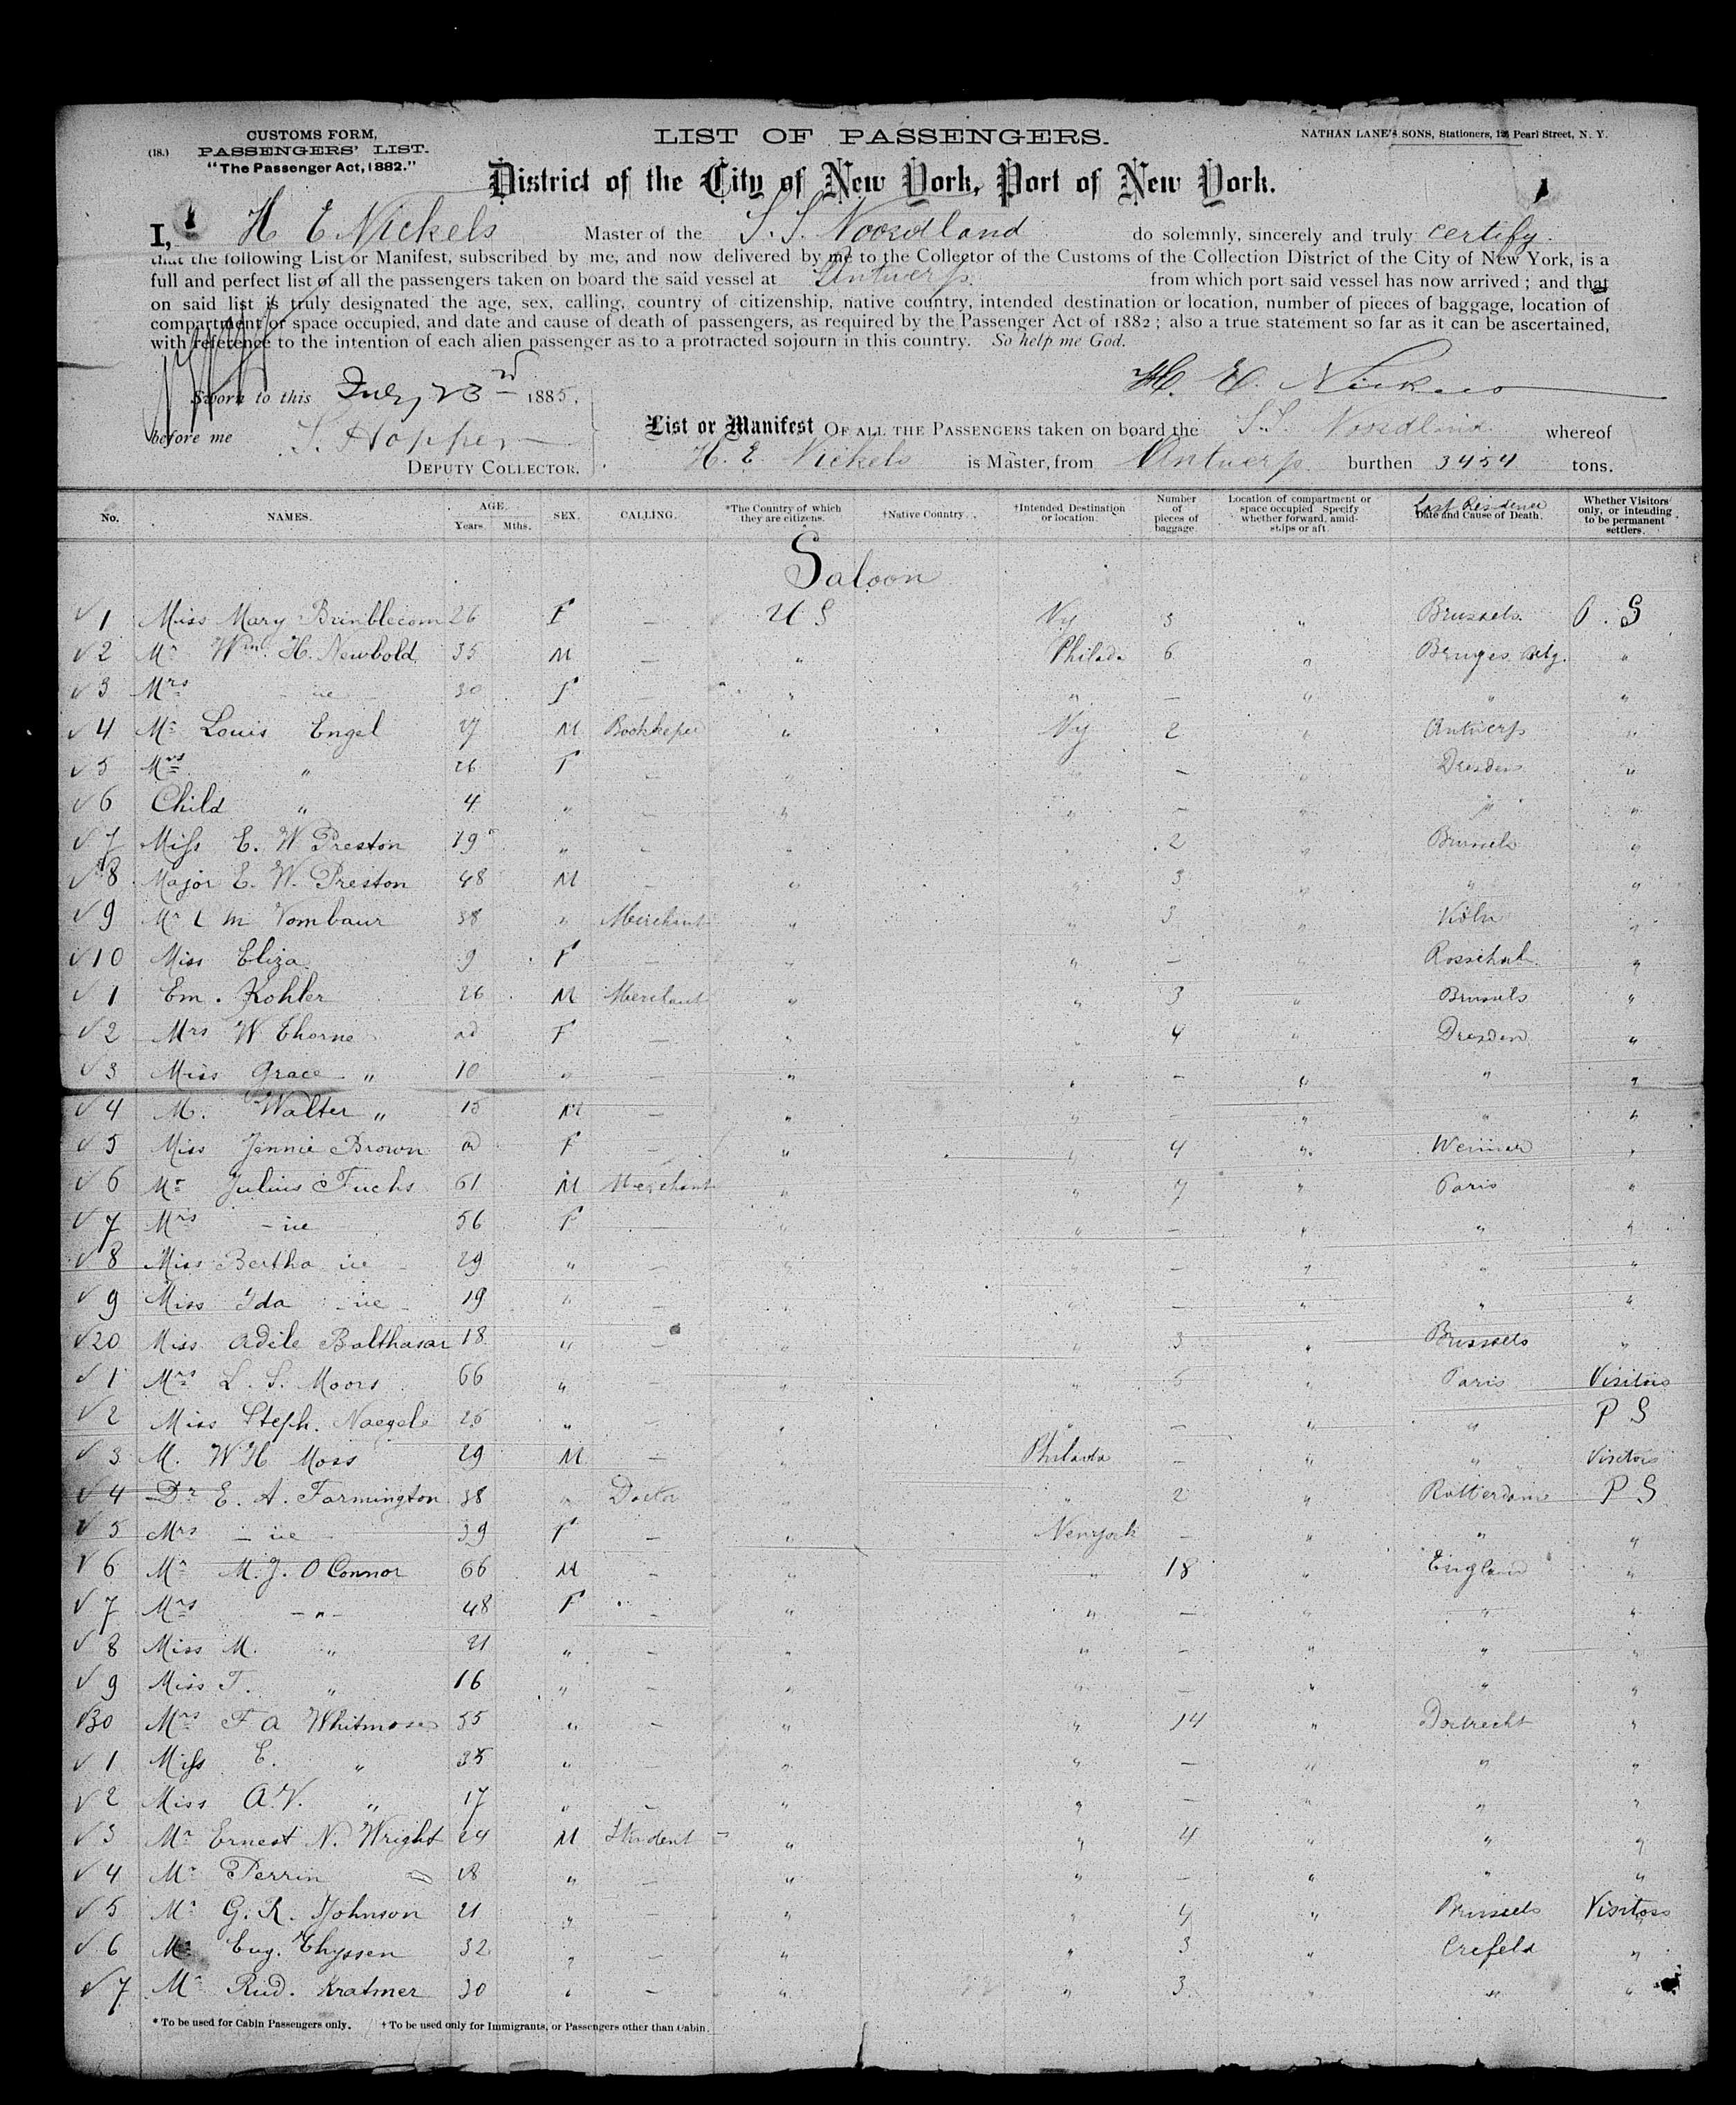 CUSTOMS FORM,
(18.) PASSENGERS' LIST.
"The Passenger Act, 1882."
LIST OF PASSENGERS.
NATHAN LANE'S SONS, Stationers, Pearl Street, N. Y.
District of the City of New York, Port of New York.
I, H E Nickels Master of the S.S. Noordland do solemnly, sincerely and truly certify
that the following List or Manifest, subscribed by me, and now delivered by me to the Collector of the Customs of the Collection District of the City of New York, is a
full and perfect list of all the passengers taken on board the said vessel at Antwerp from which port said vessel has now arrived; and that
on said list is truly designated the age, sex, calling, country of citizenship, native country, intended destination or location, number of pieces of baggage, location of
compartment or space occupied, and date and cause of death of passengers, as required by the Passenger Act of 1882; also a true statement so far as it can be ascertained,
with reference to the intention of each alien passenger as to a protracted sojourn in this country. So help me God.
H. E. Nickels
Sworn to this July 23rd 1885,
before me S. Hopper
DEPUTY COLLECTOR.
List or Manifest OF ALL THE PASSENGERS taken on board the S.S. Noordland whereof
H. E Nickels is Master, from Antwerp burthen 3454 tons.
No. NAMES. AGE. Years. Mths. SEX. CALLING. *The Country of which they are citizens. †Native Country. †Intended Destination or location. Number of pieces of baggage. Location of compartment or space occupied Specify whether forward, amidships or aft. Last Residence Date and Cause of Death. Whether Visitors only, or intending to be permanent settlers.
Saloon
1 Miss Mary Brimblecom 26 F — U S Ny 3 " Brussels. P. S
2 Mr Wm. H. Newbold 35 M — " Philada 6 " Bruges Belg. "
3 Mrs - ie 30 F — " " — " " "
4 Mr Louis Engel 27 M Bookkeper " Ny 2 " Antwerp "
5 Mrs " 26 F — " " — " Dresden "
6 Child " 4 " — " " — " " "
7 Miss E. W Preston 19 " — " " 2 " Brussels "
8 Major E. W. Preston 48 M — " " 3 " " "
9 Mr C M Vombaur 38 " Merchant " " 3 " Köln "
10 Miss Eliza 9 F — " " — " "
1 Em. Kohler 26 M Merchant " " 3 " Brussels "
2 Mrs W Thorne ad F — " " 4 " Dresden "
3 Miss Grace " 10 " — " " — " " "
4 M. Walter " 15 M — " " — " " "
5 Miss Jennie Brown ad F — " " 4 " Weimar "
6 Mr Julius Fuchs 61 M Merchant " " 7 " Paris "
7 Mrs - ie 56 F — " " — " " "
8 Miss Bertha ie 29 " — " " — " " "
9 Miss Ida - ie - 19 " — " " — " " "
20 Miss Adèle Balthasar 18 " — " " 3 " Brussels "
1 Mrs L. S. Moors 66 " — " " 5 " Paris Visitors
2 Miss Steph. Naegele 25 " — " " — " " P S
3 M. W H Moss 29 M — " Philada — " " Visitors
4 Dr E. A. Farmington 38 " Doctor " " 2 " Rotterdam P S
5 Mrs - ie 39 F — " New York — " " "
6 Mr M. J. O Connor 66 M — " " 18 " England "
7 Mrs - " - 48 F — " " — " " "
8 Miss M. " 21 " — " " — " " "
9 Miss T. " 16 " — " " — " " "
30 Mrs F A Whitmore 55 " — " " 14 " Dortrecht "
1 Miss E. " 35 " — " " — " " "
2 Miss A. V. " 17 " — " " — " " "
3 Mr Ernest N. Wright 24 M Student " " 4 " " "
4 Mr Perrin 18 " — " " — " " "
5 Mr G. R. Johnson 21 " — " " 4 " Brussels Visitors
6 Mr Eug. Thyssen 32 " — " " 3 " Crefeld "
7 Mr Rud. Kratmer 30 " — " " 3 " " "
* To be used for Cabin Passengers only. † To be used only for Immigrants, or Passengers other than Cabin.